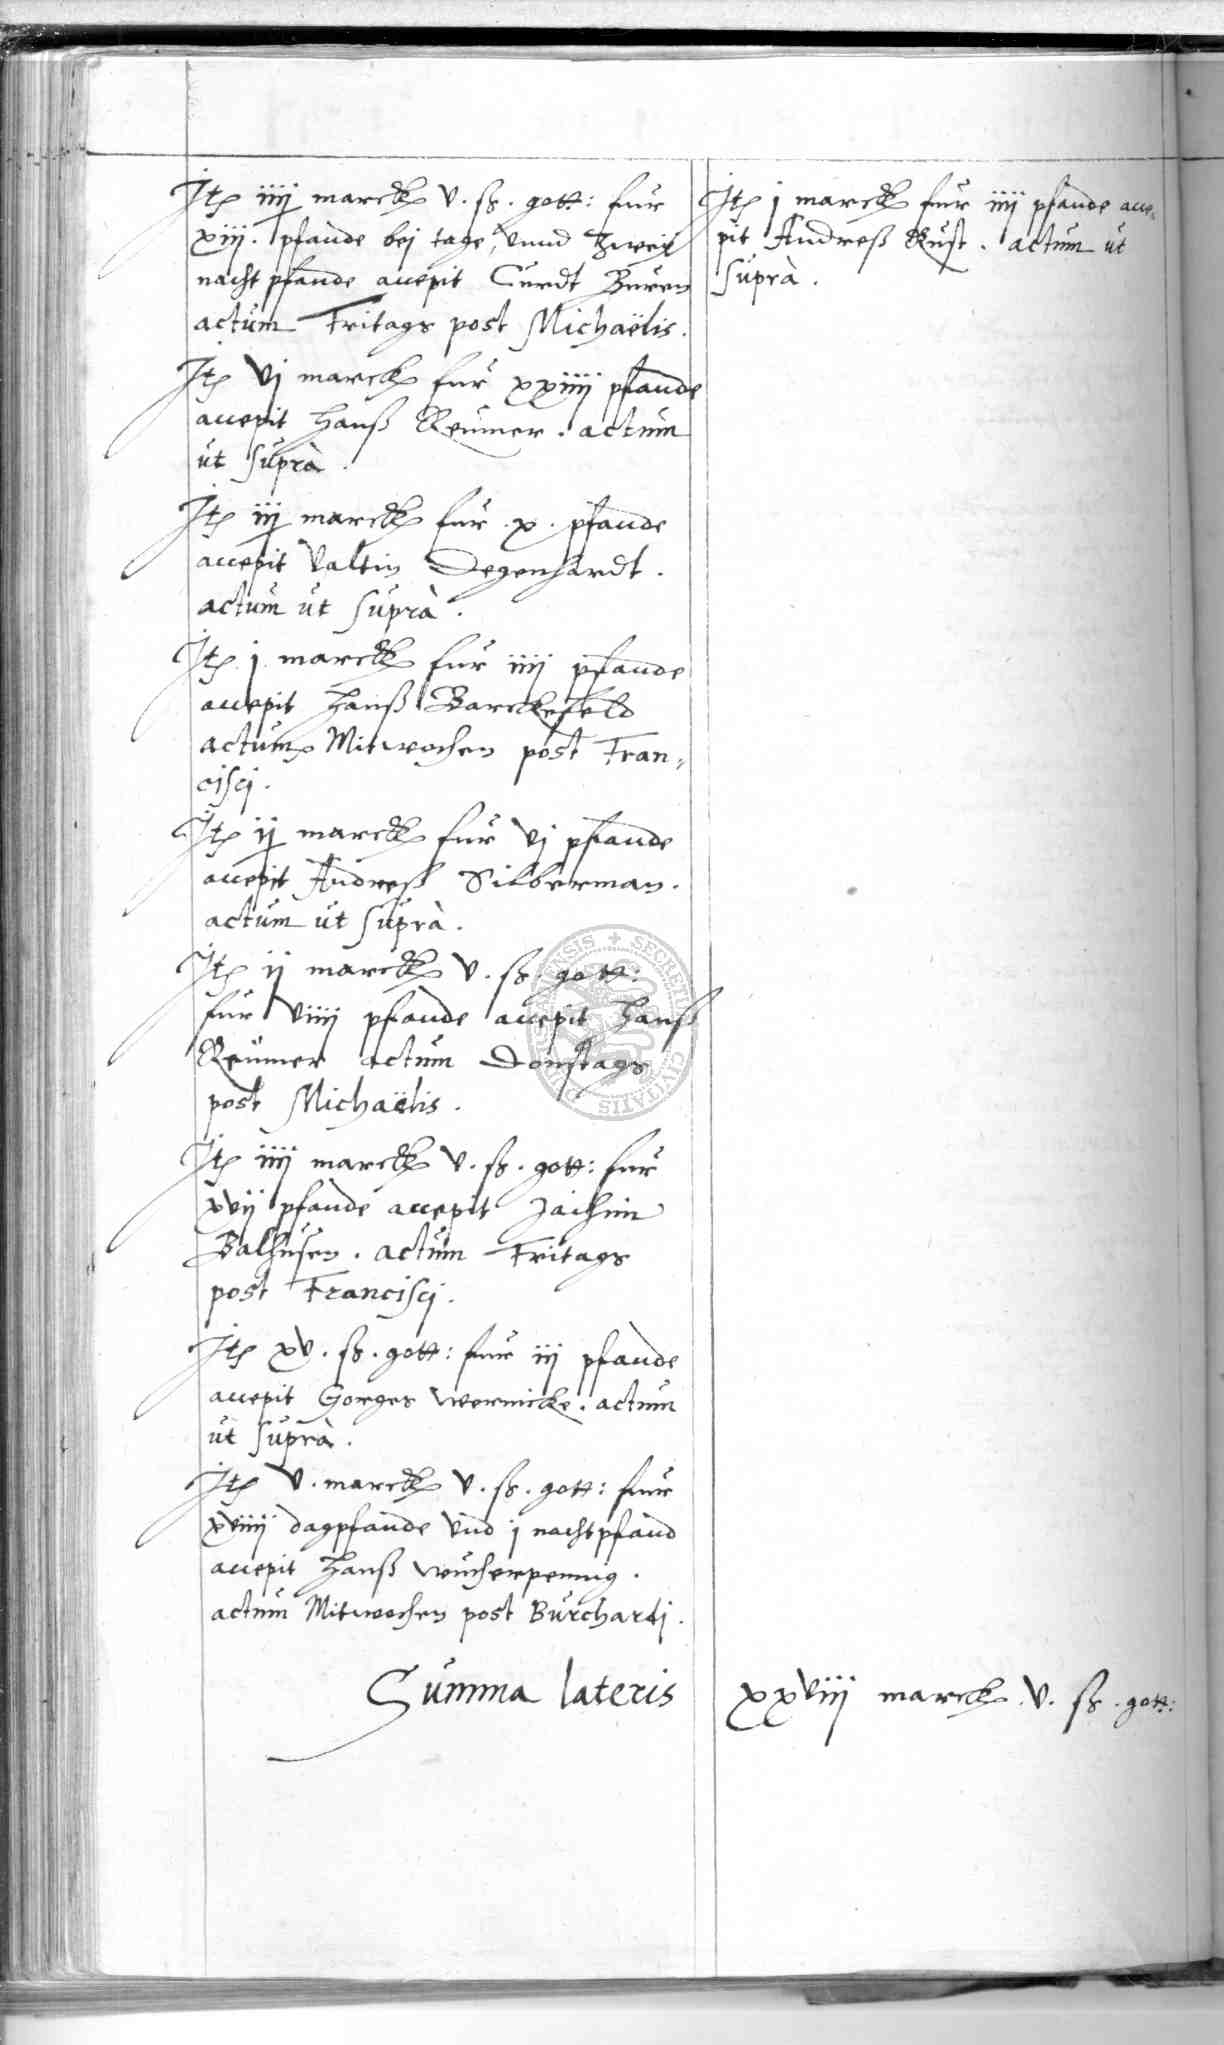 Jtem iiij marck v. ß. gott: fur
xiij. pfande bej tage, vnnd zweij
nacht pfande accepit Curdt Buren
actum Fritags post Michaëlis.
Jtem vj marck fur xxiiij pfande
accepit Hanß Reumer. actum
ut suprà.
Jtem iij marck fur .x. pfande
accepit Valtin Degenhardt.
actum ut suprà.
Jtem j marck fur iiij pfande
accepit Hanß Barckefeld
actum Mitwochen post Fran=
cisci.
Jtem ij marck fur vj pfande
accepit Andreß Silberman.
actum ut suprà.
Jtem ij marck v. ß. gott:
fur viiij pfande accepit Hanß
Reumer actum Donstags
post Michaëlis.
Jtem iiij marck v. ß. gott: fur
xvij pfande accepit Jachim
Balhusen. actum Fritags
post Francisci.
Jtem xv. ß. gott: fur iij pfande
accepit Gorges Wernicke. actum
ut suprà.
Jtem v. marck v. ß. gott: fur
xviiij dagpfande vnd j nachtpfand
accepit Hanß Wucherpennig.
actum Mitwochen post Burchardi.
Jtem j marck fur iiij pfande acce=
pit Andreß Rust. actum ut
suprà.
Summa lateris xxviij marck v. ß. gott:
SECRETUM CIVITATIS